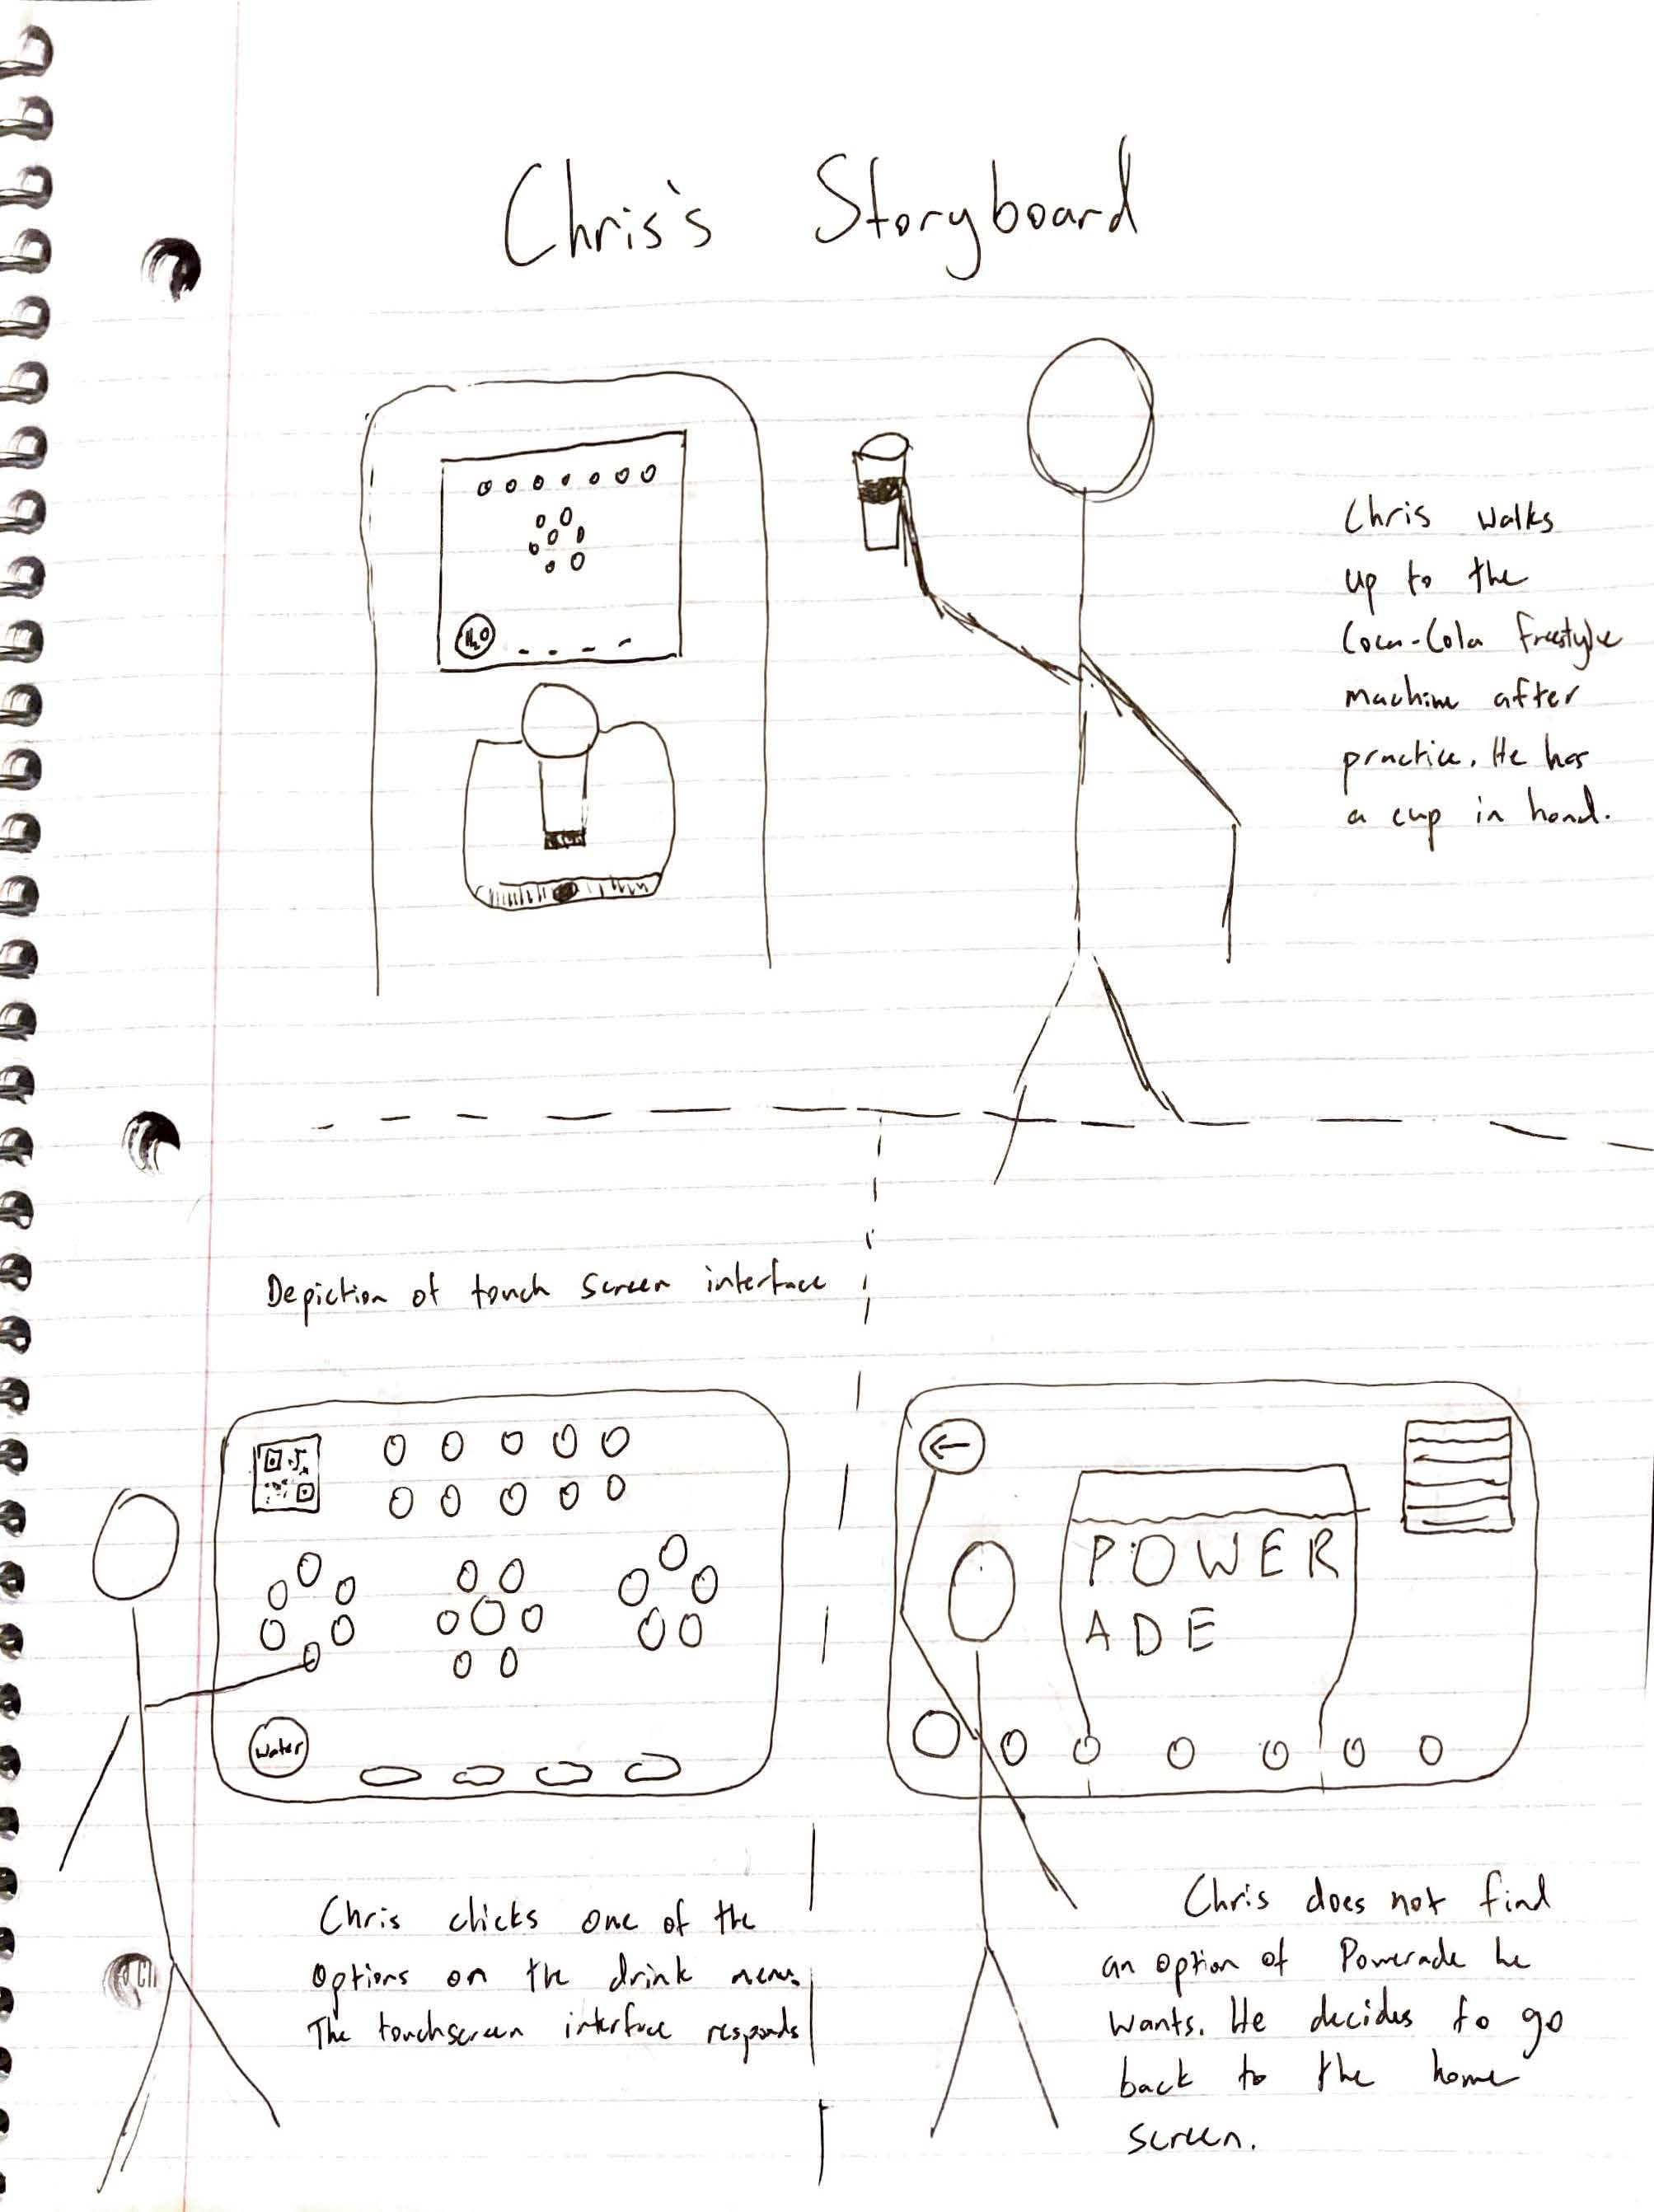 Chris's Storyboard
H₂O
Chris walks
up to the
Coca-Cola freestyle
machine after
practice. He has
a cup in hand.
Depiction of touch screen interface
Water
Chris clicks one of the
options on the drink menu.
The touchscreen interface responds
POWER
ADE
Chris does not find
an option of Powerade he
wants. He decides to go
back to the home
screen.